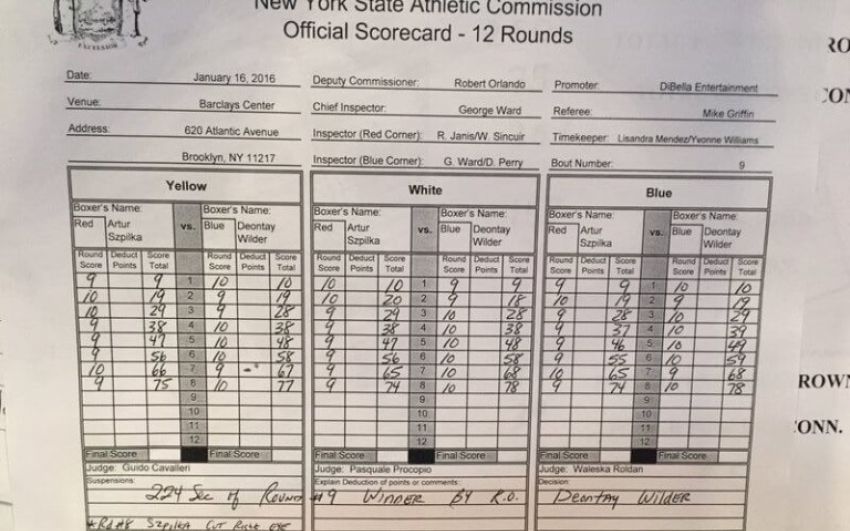 New York State Athletic Commission
Official Scorecard - 12 Rounds
EXCELSIOR
Date: January 16, 2016 Deputy Commissioner: Robert Orlando Promoter: DiBella Entertainment
Venue: Barclays Center Chief Inspector: George Ward Referee: Mike Griffin
Address: 620 Atlantic Avenue Inspector (Red Corner): R. Janis/W. Sincuir Timekeeper: Lisandra Mendez/Yvonne Williams
Brooklyn, NY 11217 Inspector (Blue Corner): G. Ward/D. Perry Bout Number: 9
Yellow White Blue
Boxer's Name: Boxer's Name: Boxer's Name: Boxer's Name: Boxer's Name: Boxer's Name:
Red Artur vs. Blue Deontay Red Artur vs. Blue Deontay Red Artur vs. Blue Deontay
Szpilka Wilder Szpilka Wilder Szpilka Wilder
Round Deduct Score Round Deduct Score Round Deduct Score Round Deduct Score Round Deduct Score Round Deduct Score
Score Points Total Score Points Total Score Points Total Score Points Total Score Points Total Score Points Total
9 9 1 10 10 10 10 1 9 9 9 9 1 10 10
10 19 2 9 19 10 20 2 9 18 10 19 2 9 19
10 29 3 9 28 9 29 3 10 28 9 28 3 10 29
9 38 4 10 38 9 38 4 10 38 9 37 4 10 39
9 47 5 10 48 9 47 5 10 48 9 46 5 10 49
9 56 6 10 58 9 56 6 10 58 9 55 6 10 59
10 66 7 9 67 9 65 7 10 68 10 65 7 9 68
9 75 8 10 77 9 74 8 10 78 9 74 8 10 78
9 9 9
10 10 10
11 11 11
12 12 12
Final Score Final Score Final Score Final Score Final Score Final Score
Judge: Guido Cavalleri Judge: Pasquale Procopio Judge: Waleska Roldan
Suspensions: Explain Deduction of points or comments: Decision:
224 Sec of Round #9 Winner By K.O. Deontay Wilder
*Rd#8 Szpilka Cut Right Eye
RO
CON
ROWN
CONN.